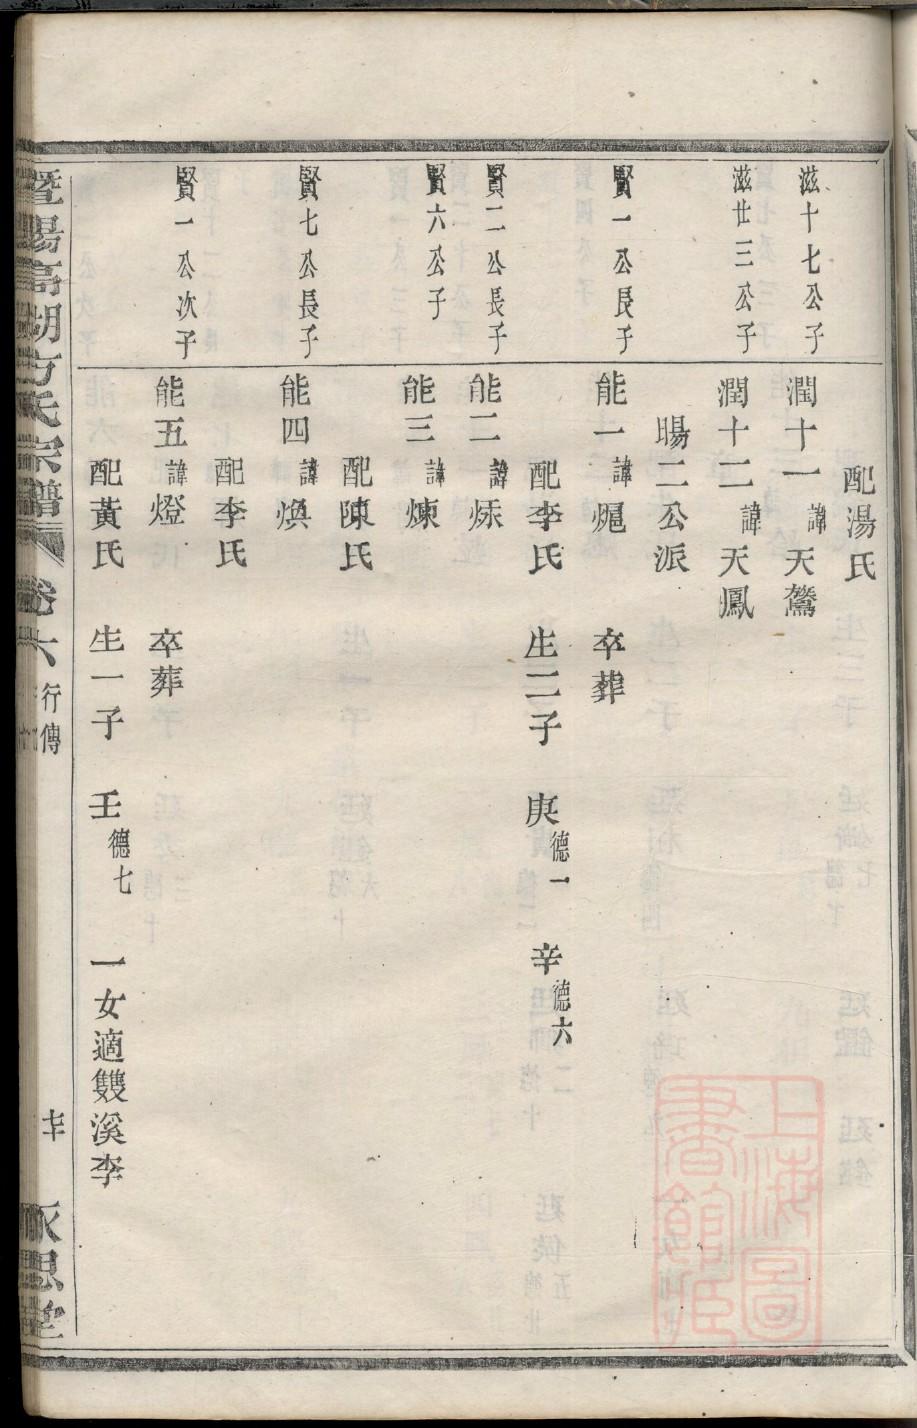 配湯氏
滋十七公子
潤十一諱天鶩
滋廿三公子
潤十二諱天鳳
暘二公派
賢一公長子
能一諱熝 卒葬
配李氏 生二子 庚德一 辛德六
賢二公長子
能二諱烁
賢六公子
能三諱煉
配陳氏
賢七公長子
能四諱煥
配李氏
賢一公次子
能五諱燈 卒葬
配黃氏 生一子 壬德七 一女適雙溪李
暨陽高湖方氏宗譜 卷六 行傳 永思堂
上海圖書館藏